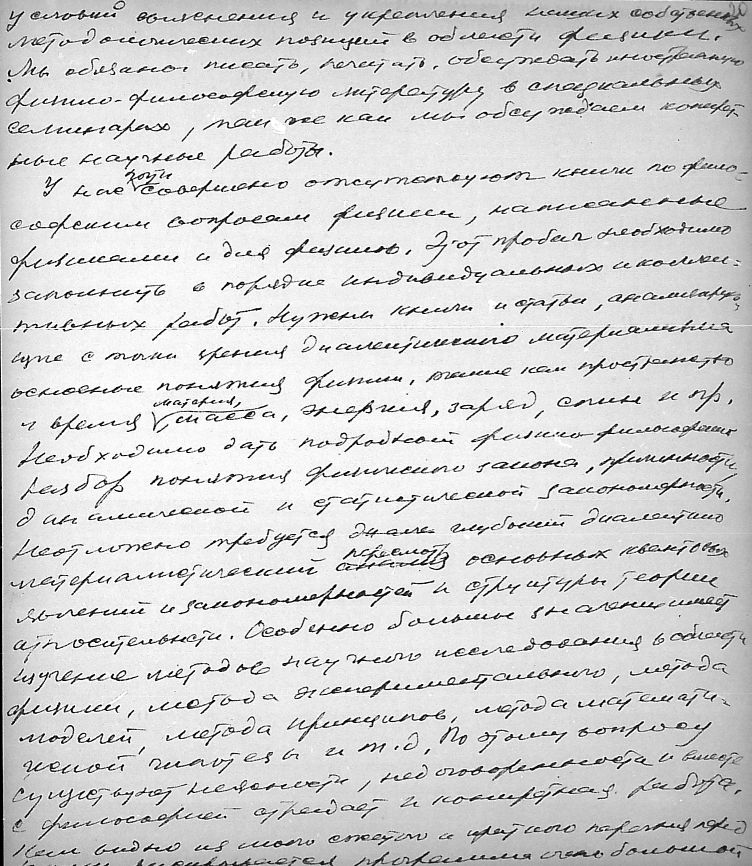 условий выяснения и укрепления наших собственных
методологических позиций в области физики.
Мы обязаны писать, печатать, обсуждать иностранную
физико-философскую литературу в специальных
семинарах, так же как мы обсуждаем конкрет-
ные научные работы.
У нас почти совершенно отсутствуют книги по фило-
софским вопросам физики, написанные
физиками и для физиков. Этот пробел необходимо
заполнить в порядке индивидуальных и коллек-
тивных работ. Нужны книги и статьи, анализирую-
щие с точки зрения диалектического материализма
основные понятия физики, такие как пространство
и время, материя, масса, энергия, заряд, спин и пр.
Необходимо дать подробный физико-философский
разбор понятия физического закона, причинности,
динамической и статистической закономерности.
Неотложно требуется глубокий диалектико
материалистический пересмотр основных квантовых
явлений и закономерностей и структуры теории
относительности. Особенно большое значение имеет
изучение методов научного исследования в области
физики, метода экспериментального, метода
моделей, метода принципов, метода математи-
ческой гипотезы и т.д. По этому вопросу
существуют неясности, недоговоренности и вместе
с философией страдает и конкретная работа.
Как видно из моего сжатого и краткого перечня перед
раскрывается программа очень большой